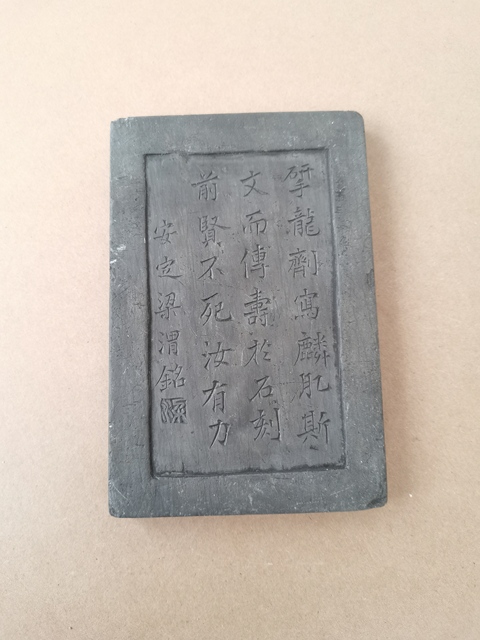 揅龍劑寫麟肌斯
文而傳壽於石刻
前賢不死汝有力
安定梁渭銘